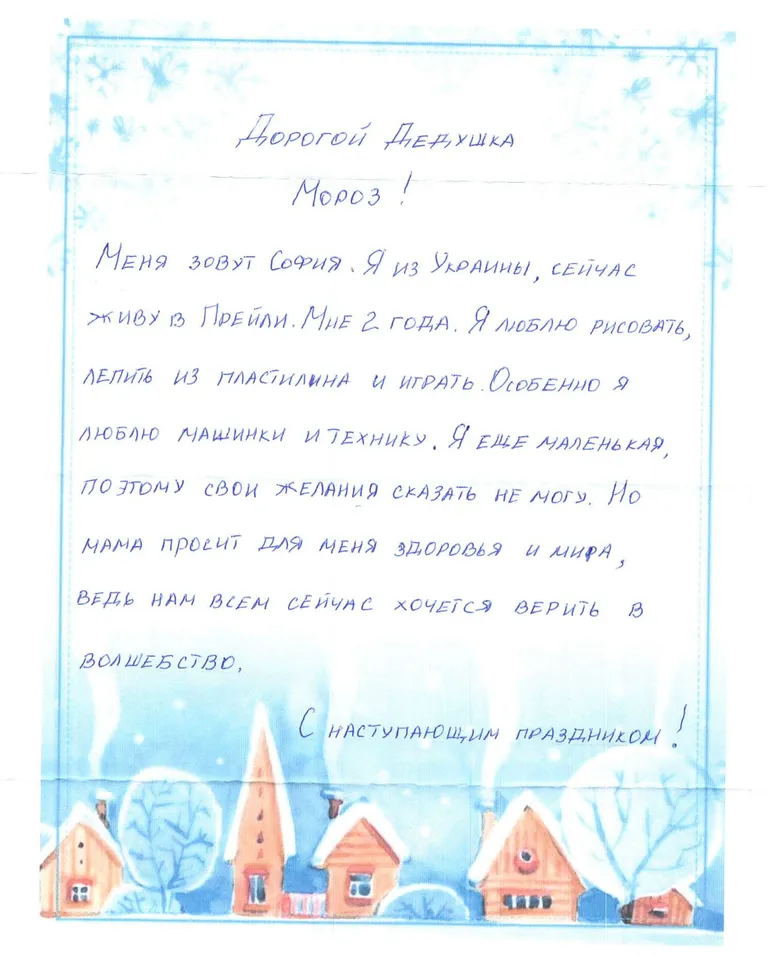 Дорогой Дедушка
Мороз!
Меня зовут София. Я из Украины, сейчас
живу в Прейли. Мне 2 года. Я люблю рисовать,
лепить из пластилина и играть. Особенно я
люблю машинки и технику. Я еще маленькая,
поэтому свои желания сказать не могу. Но
мама просит для меня здоровья и мира,
ведь нам всем сейчас хочется верить в
волшебство.
С наступающим праздником!